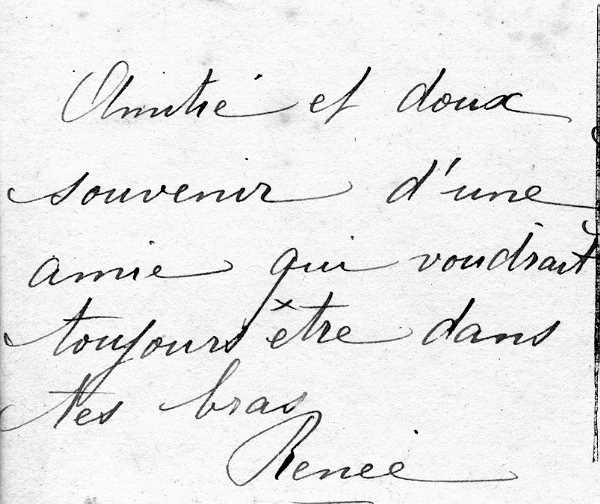 Amitié et doux
souvenir d'une
amie qui voudrait
toujours être dans
tes bras
Renée